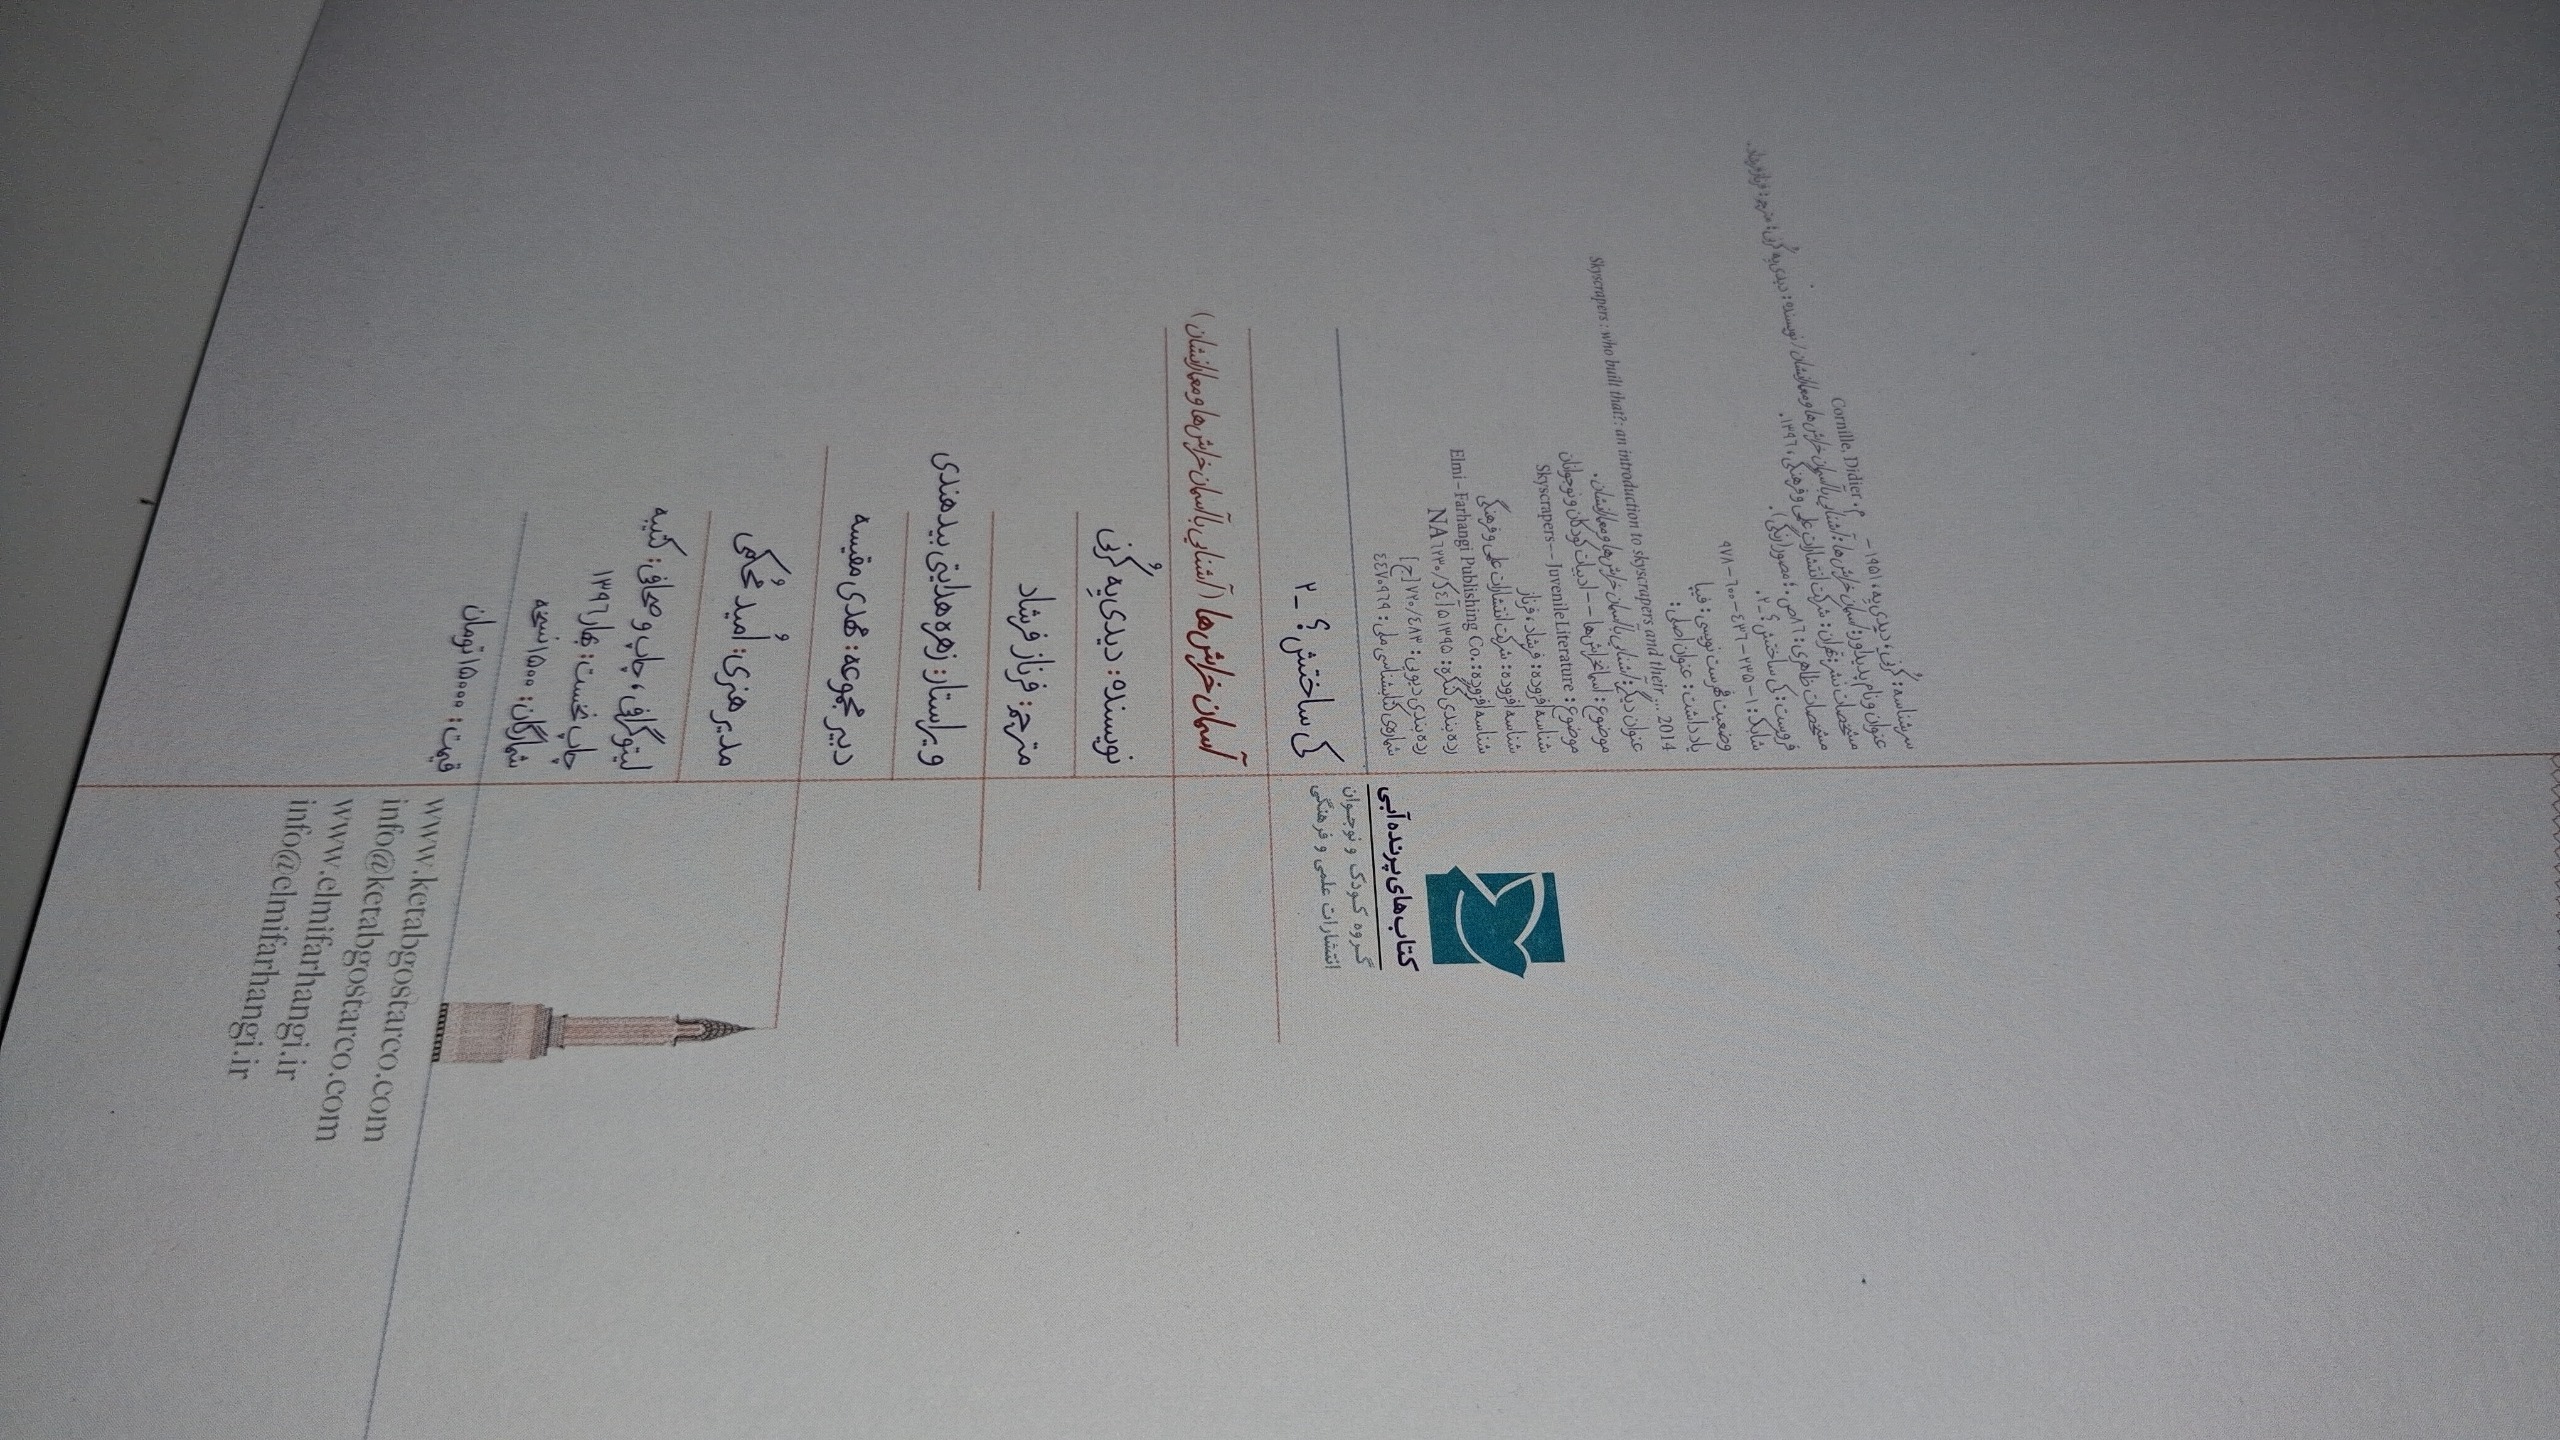 سرشناسه: کُرنی، دیدی‌یه، ۱۹۵۱ -
Cornille, Didier م.
عنوان و نام پدیدآور: آسمان‌خراش‌ها: آشنایی با آسمان‌خراش‌ها و معمارانشان / نویسنده: دیدی‌یه کُرنی؛ مترجم: فرناز فرشاد.
مشخصات نشر: تهران: شرکت انتشارات علمی و فرهنگی، ۱۳۹۶.
مشخصات ظاهری: ۸۶ ص.: مصور (رنگی).
فروست: کی ساختش؟ ـ ۲.
شابک: ۱-۲۳۵-۴۳۶-۶۰۰-۹۷۸
وضعیت فهرست نویسی: فیپا
یادداشت: عنوان اصلی:
Skyscrapers : who built that?: an introduction to skyscrapers and their ... 2014
عنوان دیگر: آشنایی با آسمان‌خراش‌ها و معمارانشان.
موضوع: آسمانخراش‌ها -- ادبیات کودکان و نوجوانان
موضوع: Skyscrapers -- Juvenile Literature
شناسه افزوده: فرشاد، فرناز
شناسه افزوده: شرکت انتشارات علمی و فرهنگی
شناسه افزوده: Elmi - Farhangi Publishing Co.
رده‌بندی کنگره: ۱۳۹۵ ۵آ۴ک/NA۶۲۳۰
رده‌بندی دیویی: ۷۲۰/۴۸۳ [ج]
شماره‌ی کتابشناسی ملی: ۴۴۷۰۹۶۹
کتاب‌های پرنده آبی
گروه کودک و نوجوان
انتشارات علمی و فرهنگی
کی ساختش؟ ـ ۲
آسمان‌خراش‌ها (آشنایی با آسمان‌خراش‌ها و معمارانشان)
نویسنده: دیدی‌یِه کُرنی
مترجم: فرناز فرشاد
ویراستار: زهره هدایتی بیدهندی
دبیر مجموعه: مهدی مقیسه
مدیر هنری: اُمید مُحکمی
لیتوگرافی، چاپ و صحافی: کتیبه
چاپ نخست: بهار ۱۳۹۶
شمارگان: ۱۵۰۰ نسخه
قیمت: ۱۵۰۰۰ تومان
www.ketabgostarco.com
info@ketabgostarco.com
www.elmifarhangi.ir
info@elmifarhangi.ir